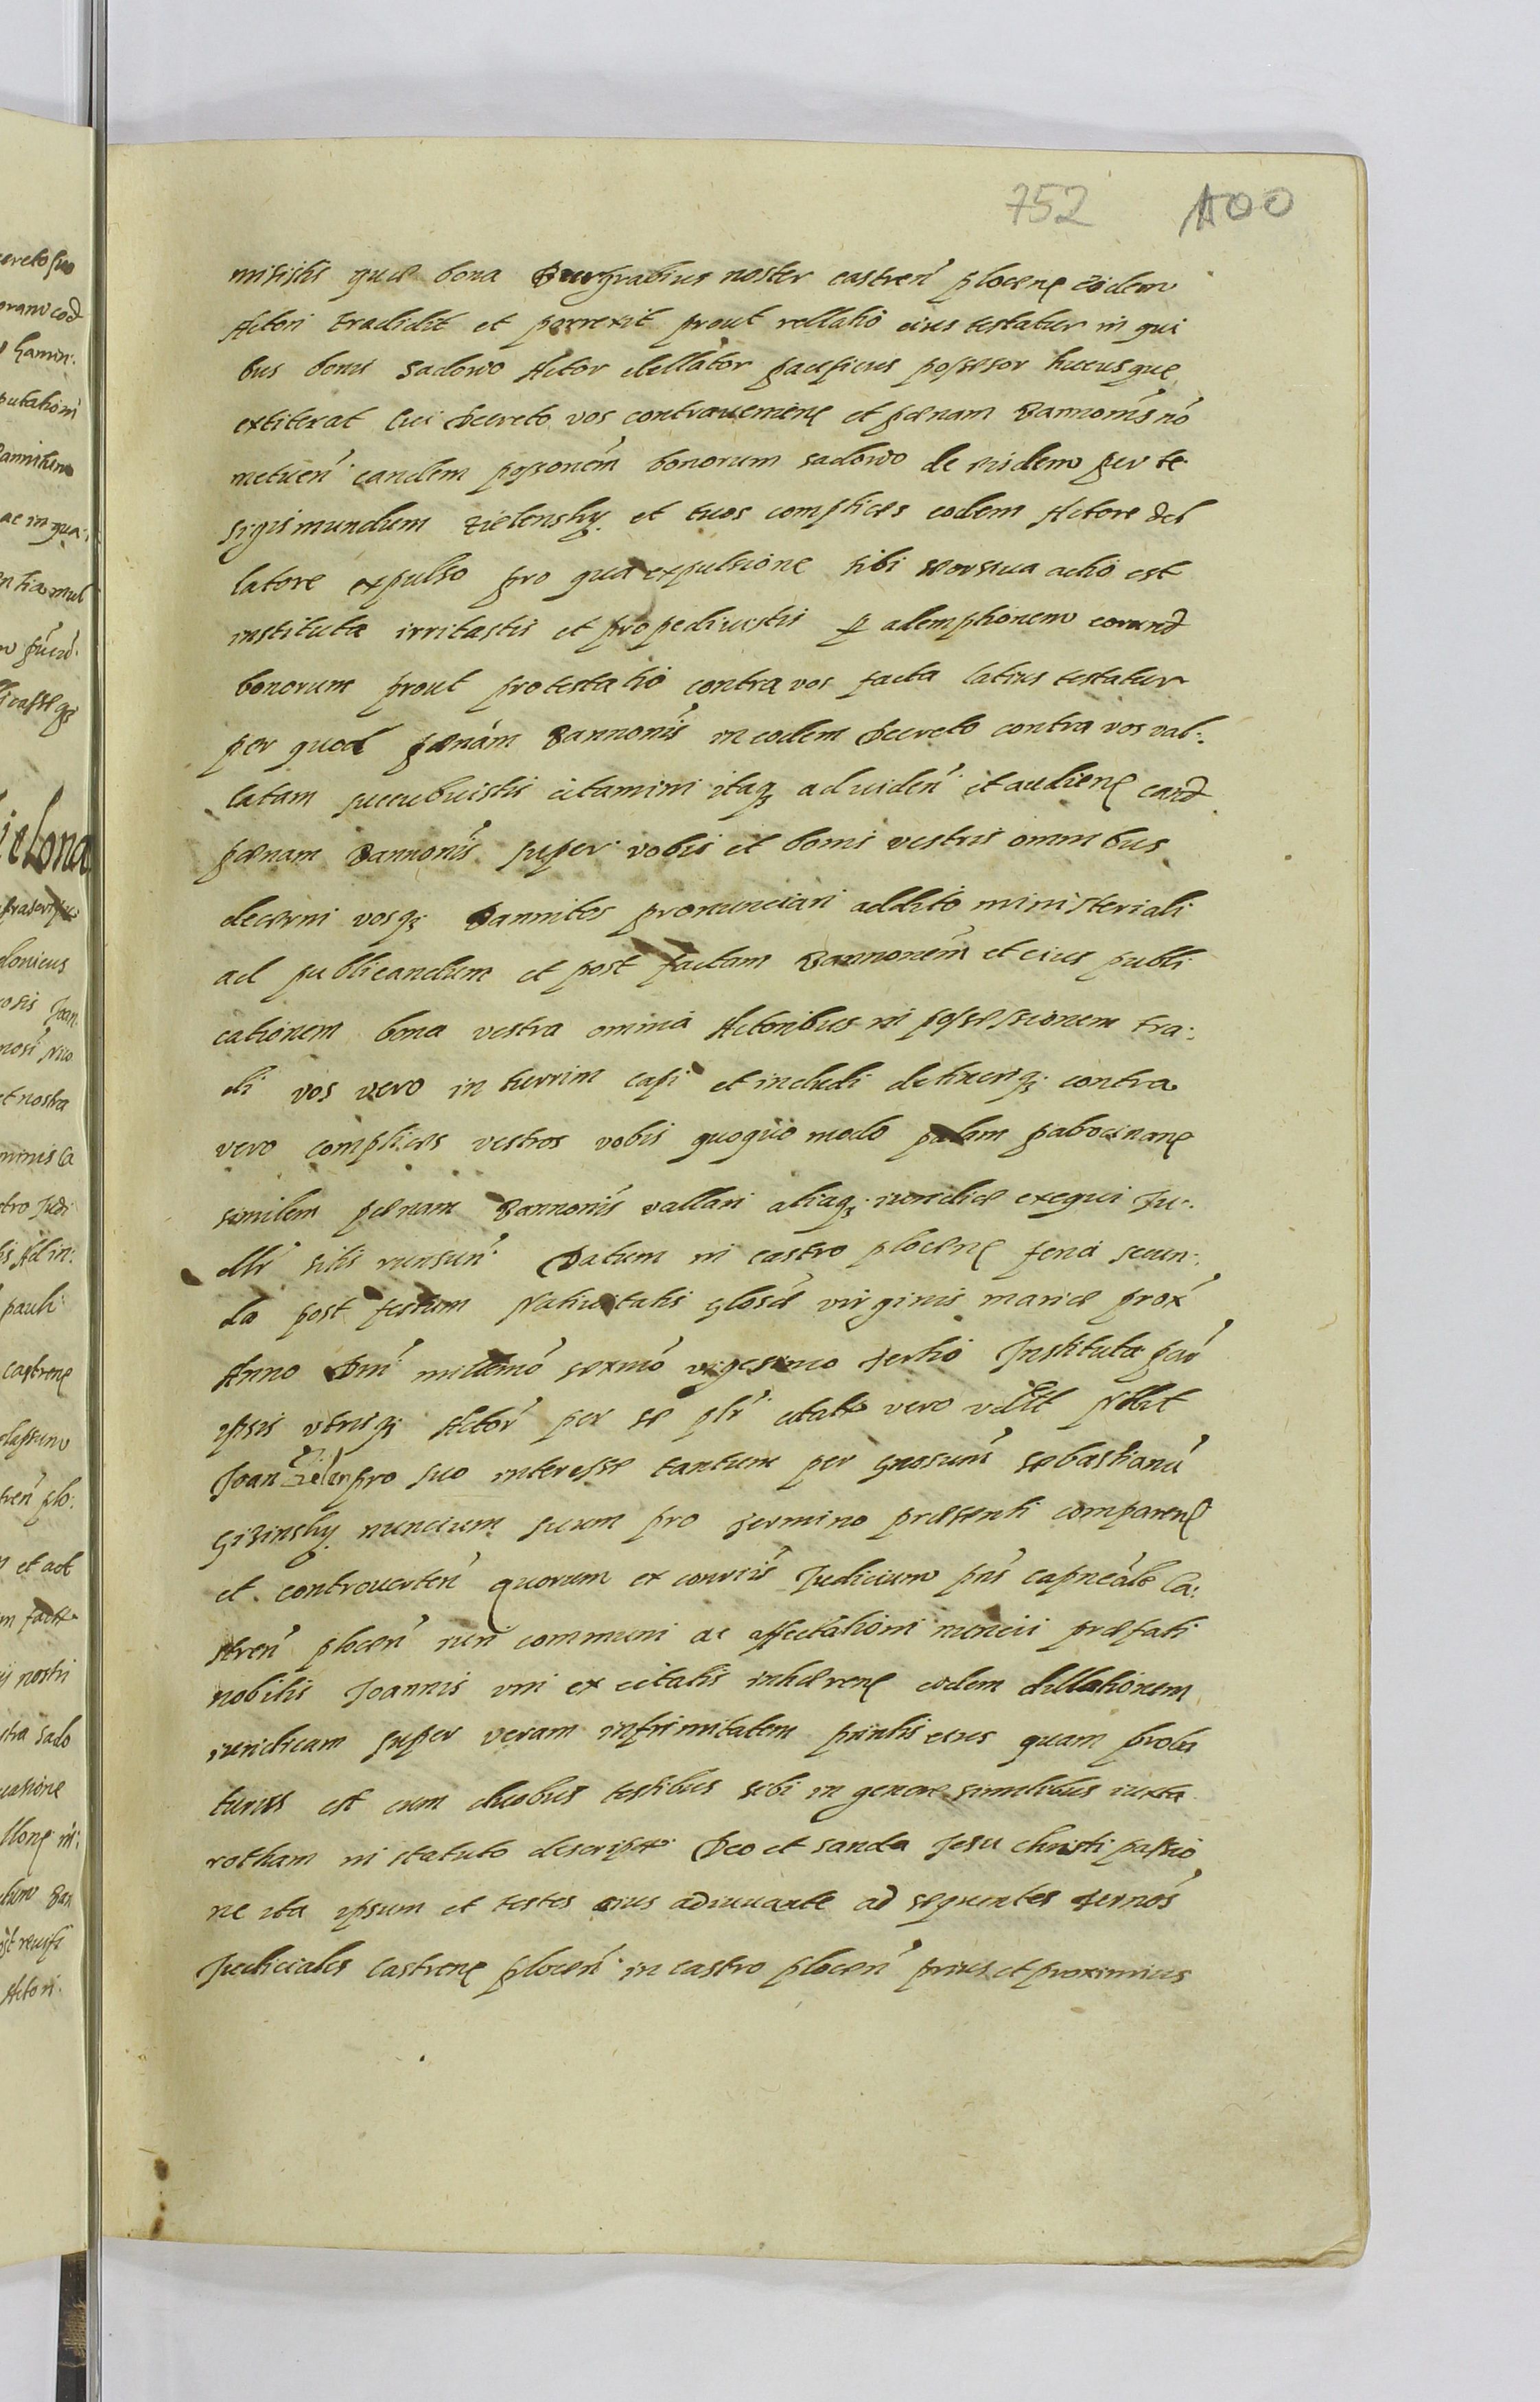 752 100
misistis quæ bona Burgrabius noster castren̄ plocen̄ eidem
Actori tradidit et porrexit prout rellatio eius testatur in qui
bus bonis Sadowo Actor dellator pacificus possessor hucusque
extiterat Cui Decreto vos contravenien̄ et pœnam Bannonis nō
metuen̄ eandem possonem̄ bonorum sadowo de iisdem per te
Sigismundum Zielensky et tuos complices eodem Actore del
latore expulso pro qua expulsione tibi seorsiva actio est
instituta irritastis et propedivistis per ademptionem eorund
bonorum prout protestatio contra vos facta latius testatur
per quod pœnam Bannonis in eodem Decreto contra vos val:
latam succubuistis citamini itaq; ad viden̄ et audien̄ eand
pœnam Bannonis super vobis et bonis vestris omnibus
decerni vosq; Bannitos pronunciari addito ministeriali
ad publicandum et post factam Bannonem̄ et eius publi
cationem bona vestra omnia Actoribus in possessionem tra:
di vos vero in turrim capi et includi detineriq; contra
vero complices vestros vobis quoquo modo palam patrocinan̄
similem pœnam Bannonis vallari aliaq; iuridice exequi Ju:
dlr sitis runsuri Datum in castro plocen̄ feria secun:
da post festum Nativitatis glosæ virginis mariæ prox̄
Anno Dni millmo sexmo vigesimo tertio Instituta par̄
ipsis utrisq; Actor̄ per se plr̄ citatis vero videlt Nobilt
Joan̄ Zielen pro suo interesse tantum per gnosum̄ sebastianū
Gizinsky nuncium suum pro termino præsenti comparen̄
et controverten̄ quorum ex conviis Judicium pns capneāle Ca:
stren̄ plocen̄ ac affectationi nuncii præfati
nobilis Joannis uni ex citatis inhæren̄ eidem dillationem
iuridicam super veram infirmitatem printis eius quam proba
turus est cum duobus testibus sibi in genere similibus iuxta
rotham in statuto descript Deo et sancta Jesu Christi passio
ne ita ipsum et testes eius adiuvante ad sequentes termos̄
Judiciales Castren̄ plocen̄ in castro plocen̄ prius et proximius